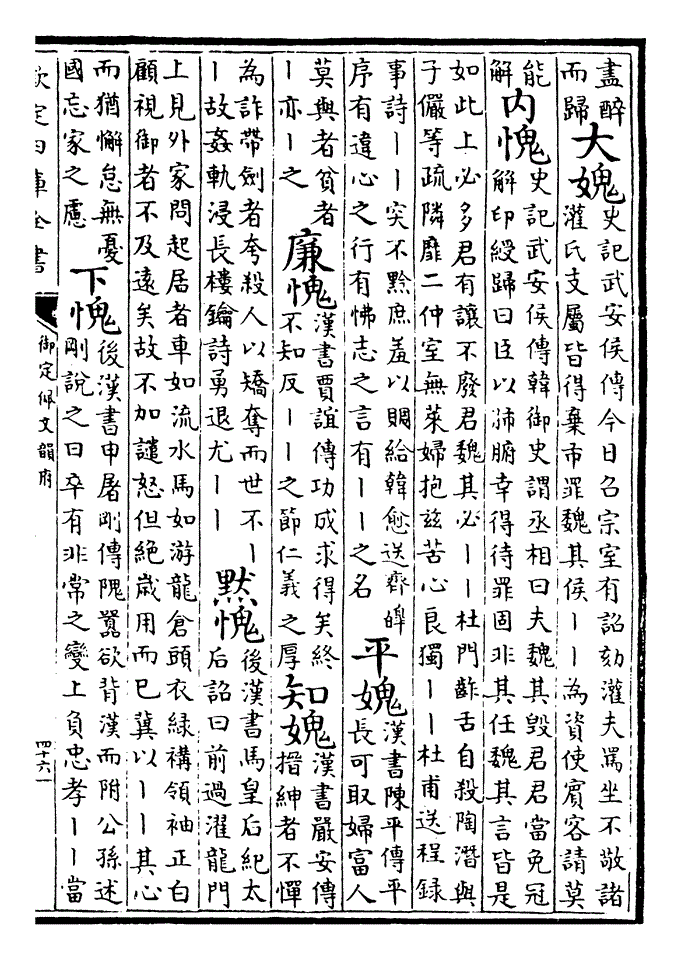 盡醉
而歸
大媿
史記武安侯傳今日召宗室有詔劾灌夫罵坐不敬諸
灌氏支屬皆得棄市罪魏其侯丨丨為資使賓客請莫
能
解
内愧
史記武安侯傳韓御史謂丞相曰夫魏其毀君君當免冠
解印綬歸曰臣以肺腑幸得待罪固非其任魏其言皆是
如此上必多君有讓不廢君魏其必丨丨杜門齰舌自殺陶潛與
子儼等疏隣靡二仲室無萊婦抱兹苦心良獨丨丨杜甫送程録
事詩丨丨突不黔庶羞以賙給韓愈送齊皥
序有違心之行有怫志之言有丨丨之名
平媿
漢書陳平傳平
長可取婦富人
莫與者貧者
丨亦丨之
廉愧
漢書賈誼傳功成求得矣終
不知反丨丨之節仁義之厚
知媿
漢書嚴安傳
搢紳者不憚
為詐帶劍者夸殺人以矯奪而世不丨
丨故姦軌浸長樓鑰詩勇退尤丨丨
黙愧
後漢書馬皇后紀太
后詔曰前過濯龍門
上見外家問起居者車如流水馬如游龍倉頭衣緑褠領袖正白
顧視御者不及遠矣故不加譴怒但絶歳用而已冀以丨丨其心
而猶懈怠無憂
國忘家之慮
下愧
後漢書申屠剛傳隗囂欲背漢而附公孫述
剛說之曰卒有非常之變上負忠孝丨丨當
欽定四庫全書
御定佩文韻府
四十六
一